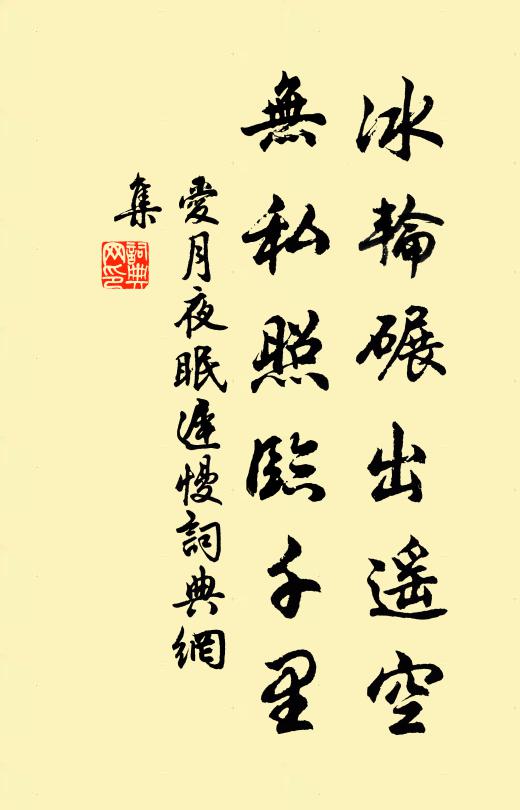 冰輪碾出遥空
無私照臨千里
愛月夜眠遲慢詞典網
集
詞典
网印